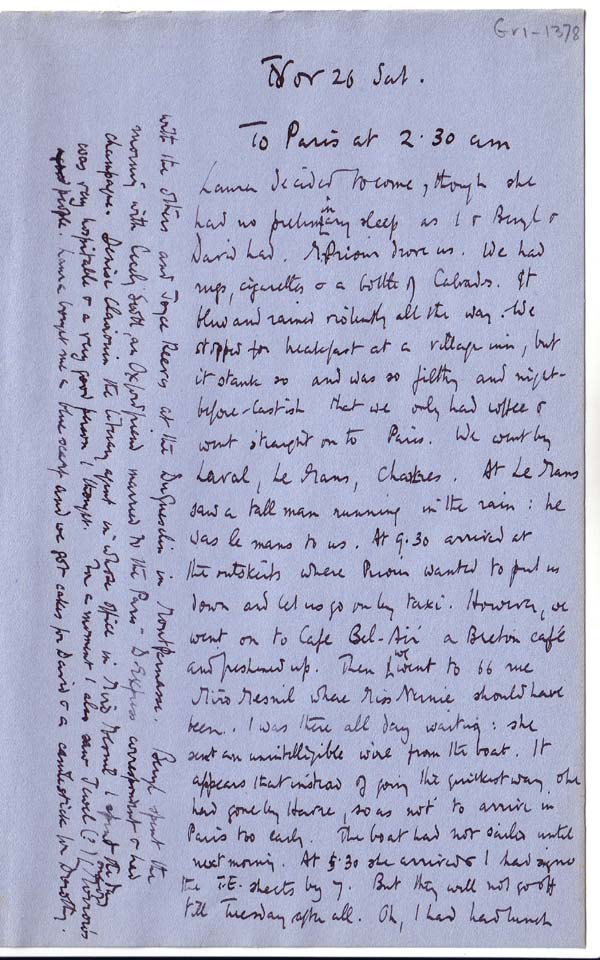 Gr1-1378
Nov 26 Sat.
To Paris at 2.30 am
Laura decided to come, though she
had no preliminary sleep as I & Beryl &
David had. M. Prioux drove us. We had
rugs, cigarettes & a bottle of Calvados. It
blew and rained violently all the way. We
stopped for breakfast at a village inn, but
it stank so and was so filthy and night-
before-lastish that we only had coffee &
went straight on to Paris. We went by
Laval, Le Mans, Chartres. At Le Mans
saw a tall man running in the rain : he
was le mans to us. At 9.30 arrived at
the outskirts where Prioux wanted to put us
down and let us go on by taxi. However, we
went on to Café Bel-Air a Breton café
and freshened up. Then we went to 66 rue
Miro Mesnil where Miss should have
been. I was there all day waiting : she
sent an unintelligible wire from the boat. It
appears that instead of going the quickest way she
had gone by Havre, so as not to arrive in
Paris too early. The boat had not sailed until
next morning. At 5.30 she arrived & I had signed
the T.E. sheets by 7. But they will not go off
till Tuesday after all. Oh, I had had lunch
with the others and Joyce Reeves at the Duguesclin in Montparnasse. Beryl spent the
morning with Cicely Scott, an Oxford friend married to the Paris D. Express correspondent & had
champagne. Denise Clairouin the literary agent in whose office in Miro Mesnil I spent the day
was very hospitable & a very good person I thought. For a moment I also saw
people. Laura bought me a blue scarf and we got cakes for David & a for Dorothy.